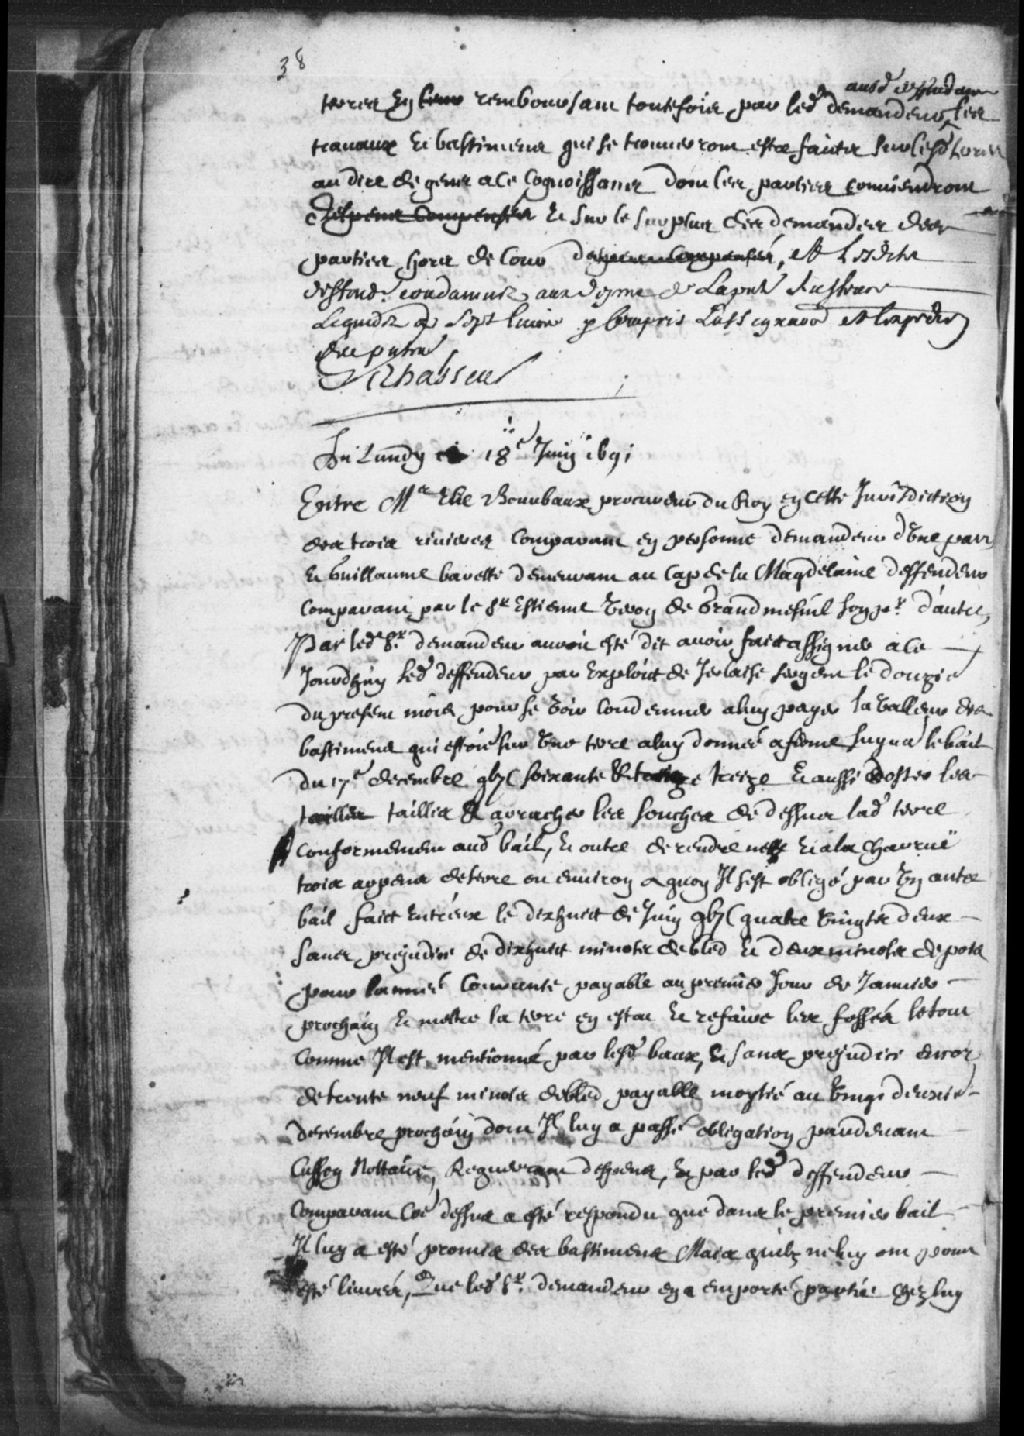 38
ausd deffendeurs
terres En leur remboursant toutefois par led demandeur les
travaux Et bastimens qui se trouveront estre faits sur lesd terres
au dire de gens a ce Cognoissans dont les parties conviendront
despens compensés Et sur le surplus des demandes des
parties hors de Cour despens compensés, Et Lesdits
deffend. condamnez aux depens de La
Liquidez a Sept livres compris Et
des pntes
Chasseur
Du Lundy 18e Juin 1691
Entre Mre Elie Bourbaux procureur du Roy En cette Jurisdiction
des trois rivieres Comparant En personne demandeur d'Une part
Et Guillaume barette demeurant au Cap de la Magdelaine deffendeur
Comparant par le Sr Estienne Veron de Grandmesnil son pr. d'autre,
Par led Sr. demandeur auroit esté dit avoir fait assigner a ce
Jourdhuy led deffendeur par Exploit de sergent le douzie
du present mois, pour se Voir Condemner a luy payer la Valleur des
bastimens qui estoient sur Une terre a luy donnée a ferme suyvant le bail
du 17e decembre gbjC soixante Et treize Et aussi d'oster les
tailles tailles Et arracher les souches de dessus lad terre
Conformement aud bail, Et outre de rendre nette Et a la Charrue
trois arpens de terre ou environ a quoy Il s'est obligé par Un autre
bail faict Entr'eux le dixhuit de Juin gbjC quatre Vingts deux
Sans prejudice de dixhuit minots de bled Et deux minots de pois
pour l'année Courante payable au premier Jour de Janvier
prochain Et mettre la terre En estat Et refaire les fossés le tout
Comme Il est mentionné par lesd baux, Et sans prejudice encor
de trente neuf minots de bled payable moytié au Vingt deuxie
decembre prochain dont Il luy a passé obligation pardevant
Cusson Nottaire, Requerant despens, Et par led deffendeur
Comparant Coe dessus a esté respondu que dans le premier bail
Il luy a esté promis des bastimens Mais qu'ilz ne luy ont point
esté livrés, Que led Sr. demandeur En a emporté partie chez luy